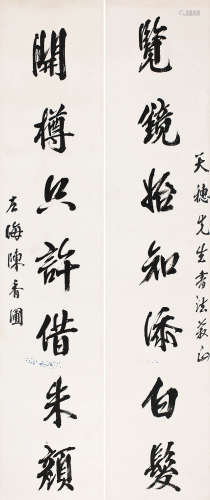 天穗先生書法蔌正
覽鏡始知添白髮
開樽只許借朱顏
左海陳香圃